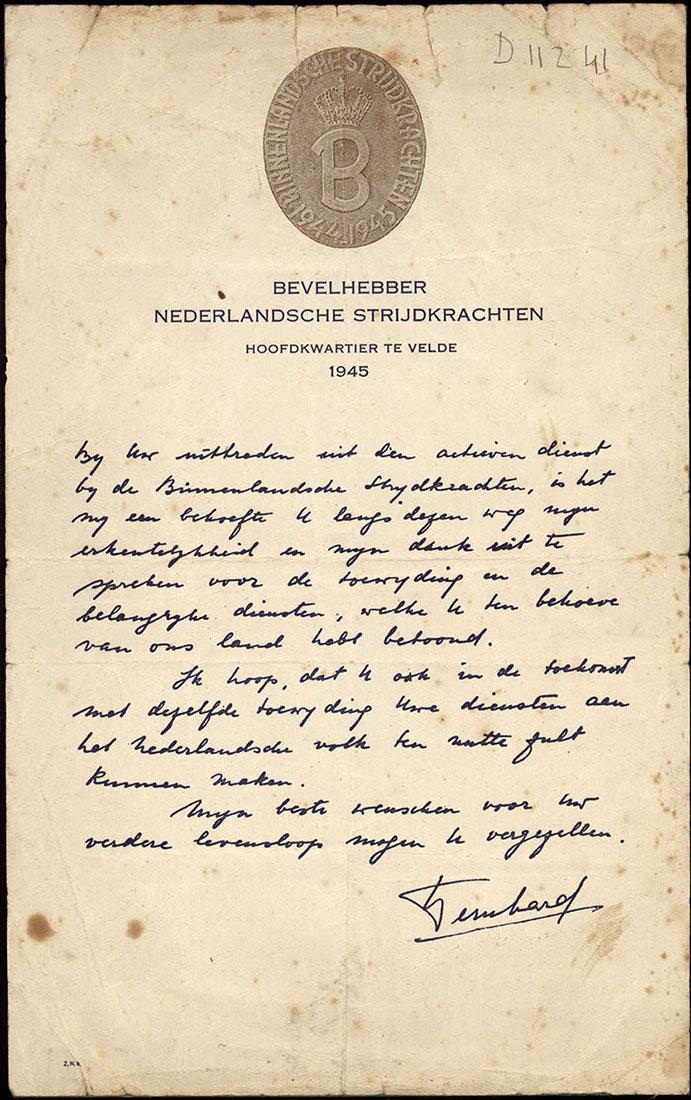 D 11 2 41
BINNENLANDSCHE STRIJDKRACHTEN
B
1944-1945
BEVELHEBBER
NEDERLANDSCHE STRIJDKRACHTEN
HOOFDKWARTIER TE VELDE
1945
By Uw uittreden uit den actieven dienst
by de Binnenlandsche Strydkrachten, is het
my een behoefte U langs dezen weg myn
erkentelykheid en myn dank uit te
spreken voor de toewyding en de
belangryke diensten, welke U ten behoeve
van ons land hebt betoond.
Ik hoop, dat U ook in de toekomst
met dezelfde toewyding Uwe diensten aan
het Nederlandsche volk ten nutte zult
kunnen maken.
Myn beste wenschen voor Uw
verdere levensloop mogen U vergezellen.
Bernhard
Z.N.B.